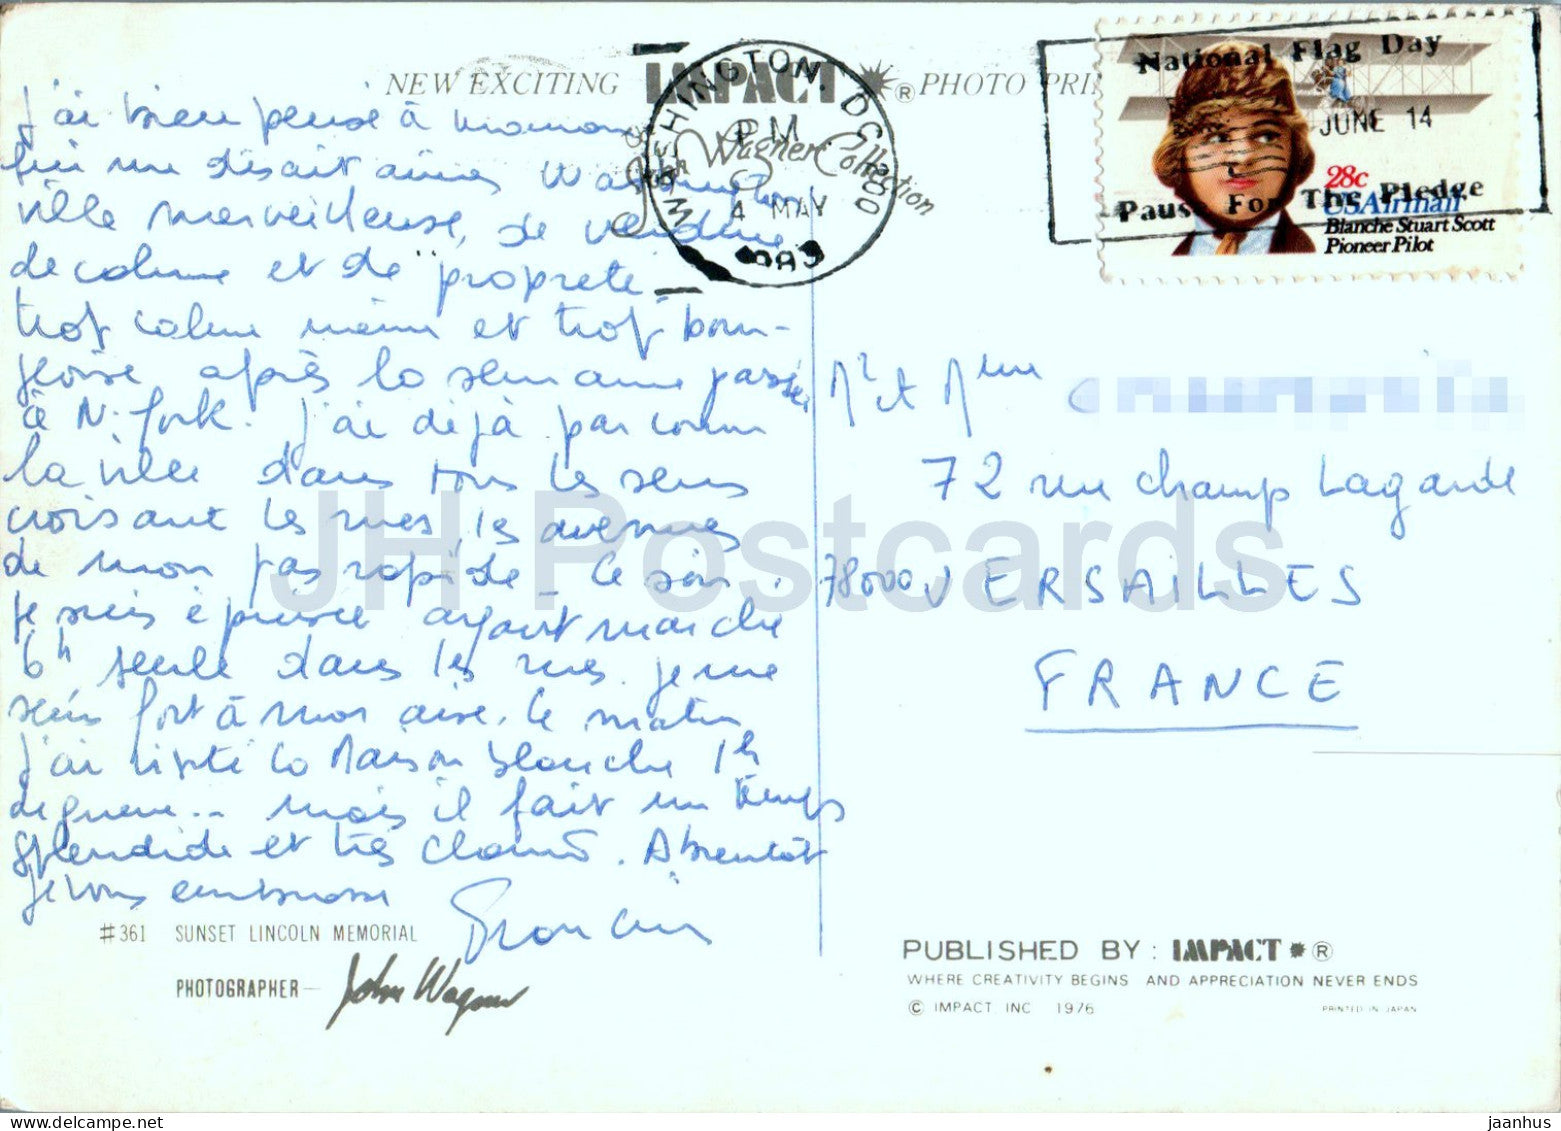 NEW EXCITING IMPACT ® PHOTO
John Wagner Collection
WASHINGTON. DC 200
PM
4 MAY
1983
National Flag Day
JUNE 14
Pause For The Pledge
28c
USAirmail
Blanche Stuart Scott
Pioneer Pilot
J'ai bien pensé à maman
qui me disait aimer Washington
ville merveilleuse, de verdure
de calme et de "propreté,
trop calme même et trop bour-
geoise après la semaine passée
à N. York. J'ai déjà parcouru
la ville dans tous les sens
croisant les rues, les avenues
de mon pas rapide - Ce soir,
je suis épuisée ayant marché
6h seule dans les rues. Je me
sens fort à mon aise. Ce matin
j'ai visité la Maison blanche 1h
de queue... mais il fait un temps
splendide et très chaud. A bientôt
Je vous embrasse
M et Mme
72 rue champ Lagarde
78000 VERSAILLES
FRANCE
#361 SUNSET LINCOLN MEMORIAL
PHOTOGRAPHER— John Wagner
PUBLISHED BY: IMPACT ®
WHERE CREATIVITY BEGINS AND APPRECIATION NEVER ENDS
© IMPACT, INC 1976
PRINTED IN JAPAN
JH Postcards
www.delcampe.net
jaanhus